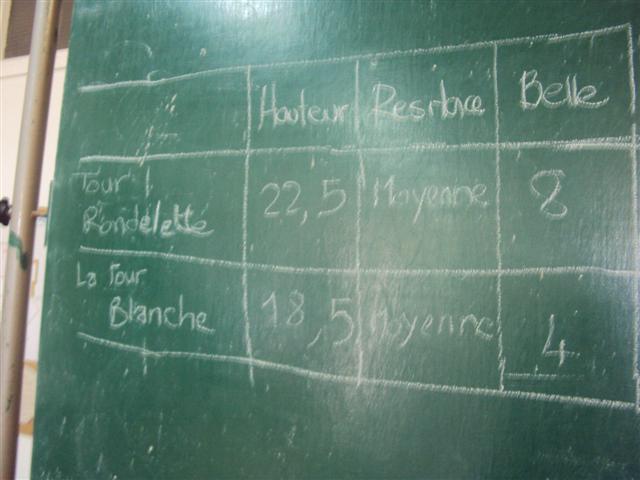 Hauteur Resistance Belle
Tour
Rondelette 22,5 Moyenne 8
La Tour
Blanche 18,5 Moyenne 4